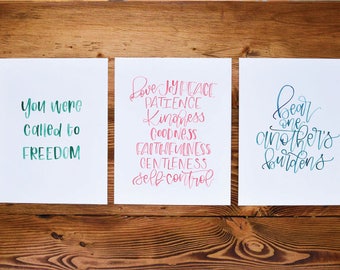 You were
called to
FREEDOM
Love JOY PEACE
PATIENCE
Kindness
GOODNESS
FAITHFULNESS
GENTLENESS
self-control
bear
one
another's
burdens